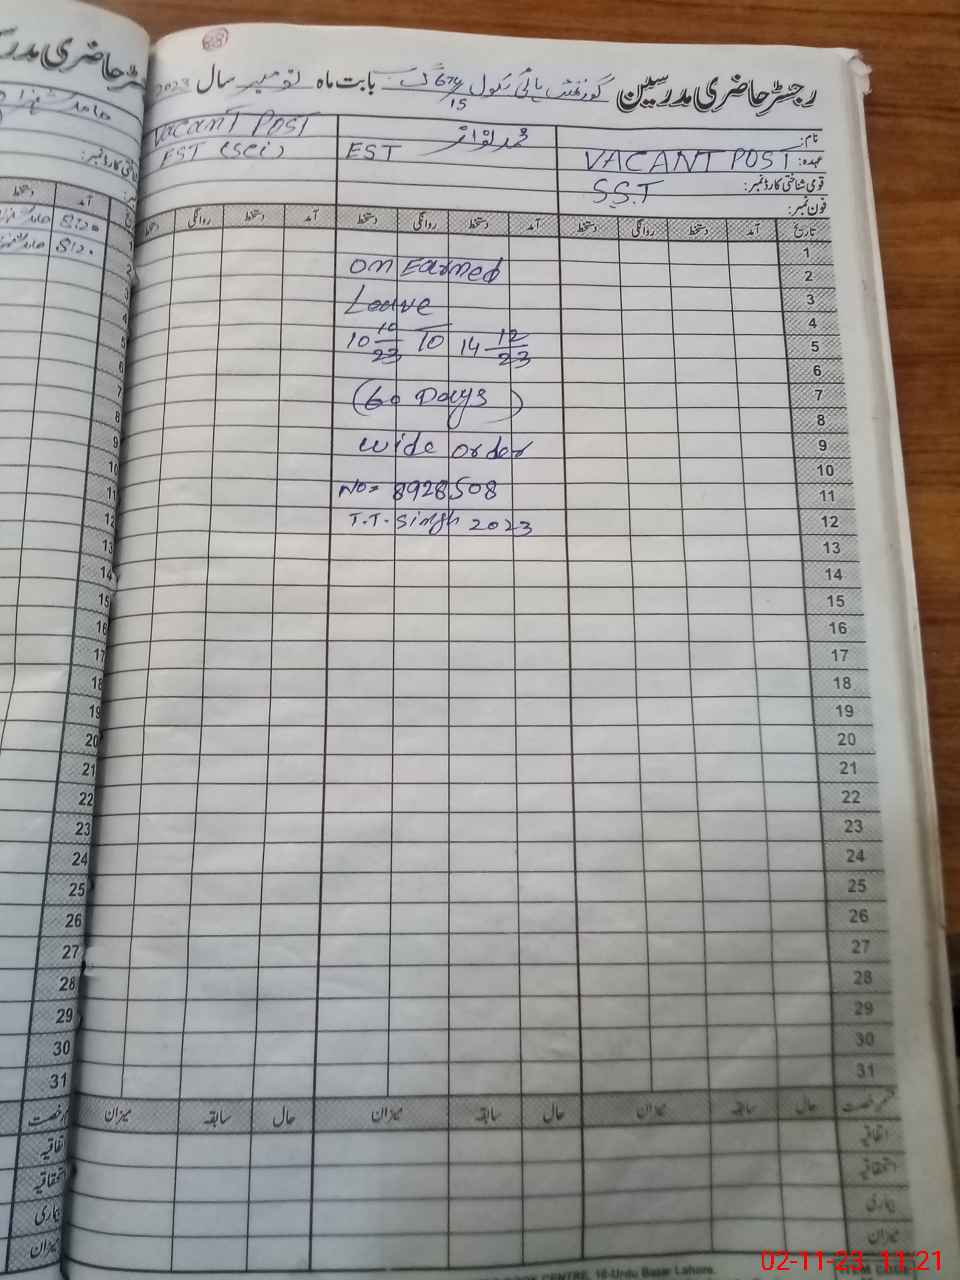 رجسٹر حاضری مدرسین گورنمنٹ ہائی سکول 674/15 گ ب بابت ماہ نومبر سال 2023
28
نام:
عہدہ: VACANT POST
قومی شناختی کارڈ نمبر: SST
فون نمبر:
محمد نواز
EST
VACANT POST
EST (SCI)
تاریخ آمد دستخط روانگی دستخط آمد دستخط روانگی دستخط آمد دستخط روانگی دستخط
1
2
3
4
5
6
7
8
9
10
11
12
13
14
15
16
17
18
19
20
21
22
23
24
25
26
27
28
29
30
31
on Earned
Leave
10 10/23 To 14 12/23
(60 Days)
wide order
No= 8928508
T.T.Singh 2023
رخصت حال سابقہ میزان حال سابقہ میزان حال سابقہ میزان
اتفاقیہ
استحقاقیہ
بیماری
میزان
BOOK CENTRE, 16-Urdu Bazar Lahore.
02-11-23 11:21